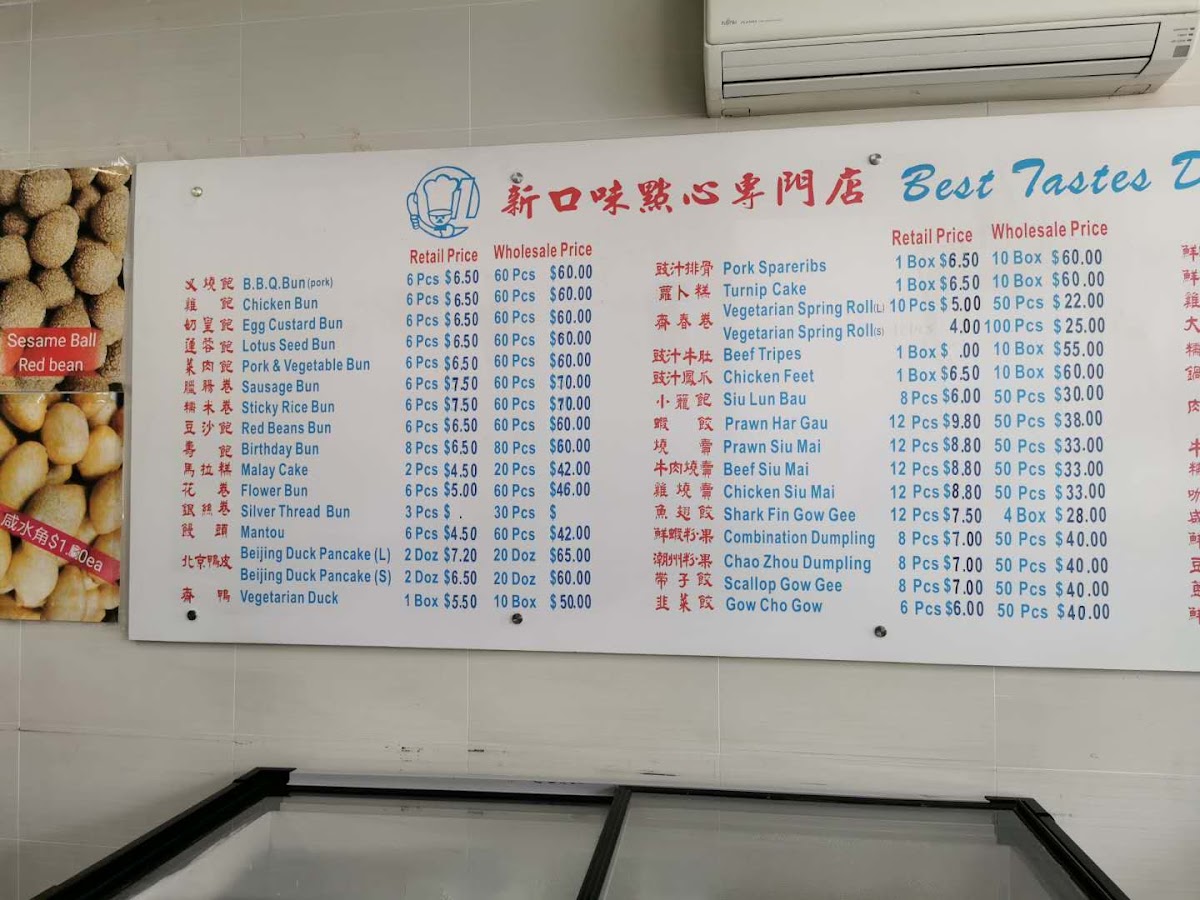 FUJITSU
新口味點心專門店 Best Tastes D
Retail Price Wholesale Price
叉燒飽 B.B.Q.Bun (pork) 6 Pcs $6.50 60 Pcs $60.00
雞飽 Chicken Bun 6 Pcs $6.50 60 Pcs $60.00
奶皇飽 Egg Custard Bun 6 Pcs $6.50 60 Pcs $60.00
蓮蓉飽 Lotus Seed Bun 6 Pcs $6.50 60 Pcs $60.00
菜肉飽 Pork & Vegetable Bun 6 Pcs $6.50 60 Pcs $60.00
臘腸卷 Sausage Bun 6 Pcs $7.50 60 Pcs $70.00
糯米卷 Sticky Rice Bun 6 Pcs $7.50 60 Pcs $70.00
豆沙飽 Red Beans Bun 6 Pcs $6.50 60 Pcs $60.00
壽飽 Birthday Bun 8 Pcs $6.50 80 Pcs $60.00
馬拉糕 Malay Cake 2 Pcs $4.50 20 Pcs $42.00
花卷 Flower Bun 6 Pcs $5.00 60 Pcs $46.00
銀絲卷 Silver Thread Bun 3 Pcs $ . 30 Pcs $
饅頭 Mantou 6 Pcs $4.50 60 Pcs $42.00
北京鴨皮 Beijing Duck Pancake (L) 2 Doz $7.20 20 Doz $65.00
Beijing Duck Pancake (S) 2 Doz $6.50 20 Doz $60.00
齋鴨 Vegetarian Duck 1 Box $5.50 10 Box $50.00
Retail Price Wholesale Price
豉汁排骨 Pork Spareribs 1 Box $6.50 10 Box $60.00
蘿卜糕 Turnip Cake 1 Box $6.50 10 Box $60.00
齋春卷 Vegetarian Spring Roll(L) 10 Pcs $5.00 50 Pcs $22.00
Vegetarian Spring Roll(S) 4.00 100 Pcs $25.00
豉汁牛肚 Beef Tripes 1 Box $ .00 10 Box $55.00
豉汁鳳爪 Chicken Feet 1 Box $6.50 10 Box $60.00
小籠飽 Siu Lun Bau 8 Pcs $6.00 50 Pcs $30.00
蝦餃 Prawn Har Gau 12 Pcs $9.80 50 Pcs $38.00
燒賣 Prawn Siu Mai 12 Pcs $8.80 50 Pcs $33.00
牛肉燒賣 Beef Siu Mai 12 Pcs $8.80 50 Pcs $33.00
雞燒賣 Chicken Siu Mai 12 Pcs $8.80 50 Pcs $33.00
魚翅餃 Shark Fin Gow Gee 12 Pcs $7.50 4 Box $28.00
鮮蝦粉果 Combination Dumpling 8 Pcs $7.00 50 Pcs $40.00
潮州粉果 Chao Zhou Dumpling 8 Pcs $7.00 50 Pcs $40.00
帶子餃 Scallop Gow Gee 8 Pcs $7.00 50 Pcs $40.00
韭菜餃 Gow Cho Gow 6 Pcs $6.00 50 Pcs $40.00
Sesame Ball
Red bean
咸水角$1. 0ea